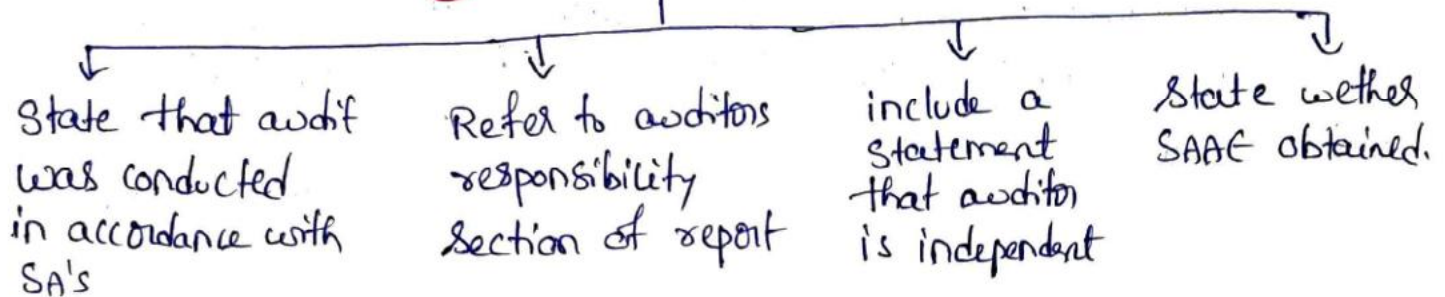 State that audit
was conducted
in accordance with
SA's
Refer to auditors
responsibility
section of report
include a
statement
that auditor
is independent
State wether
SAAE obtained.